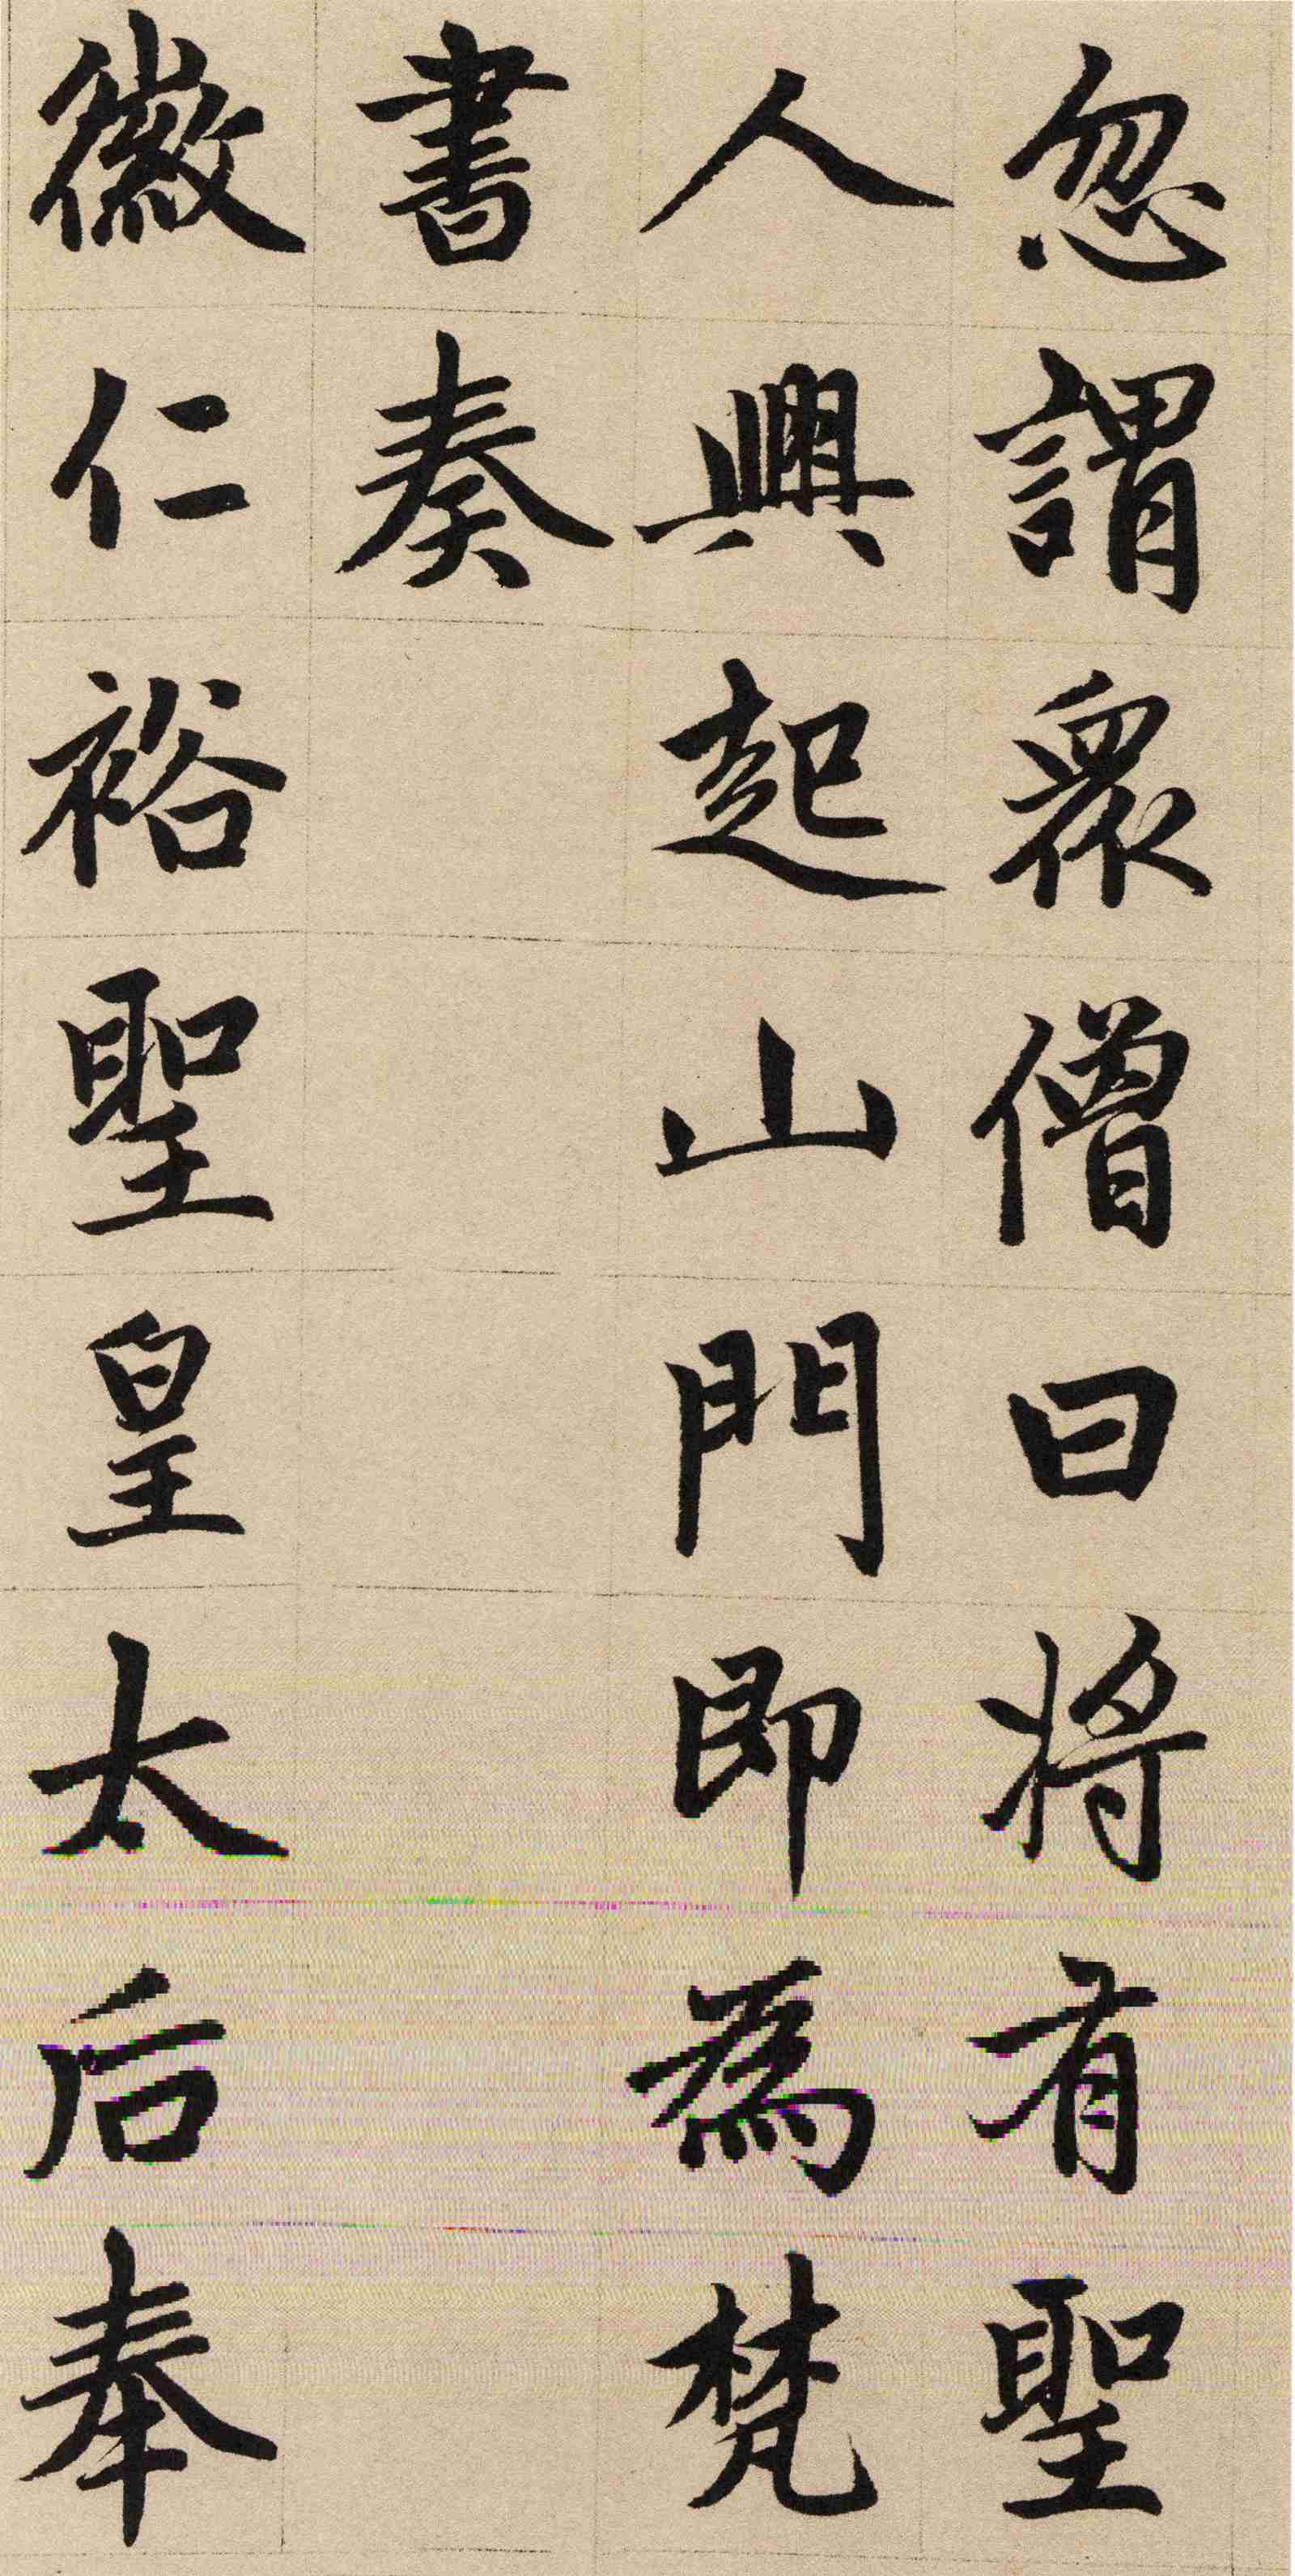 忽謂眾僧曰将有聖
人興起山門即為梵
書奏
徽仁裕聖皇太后奉